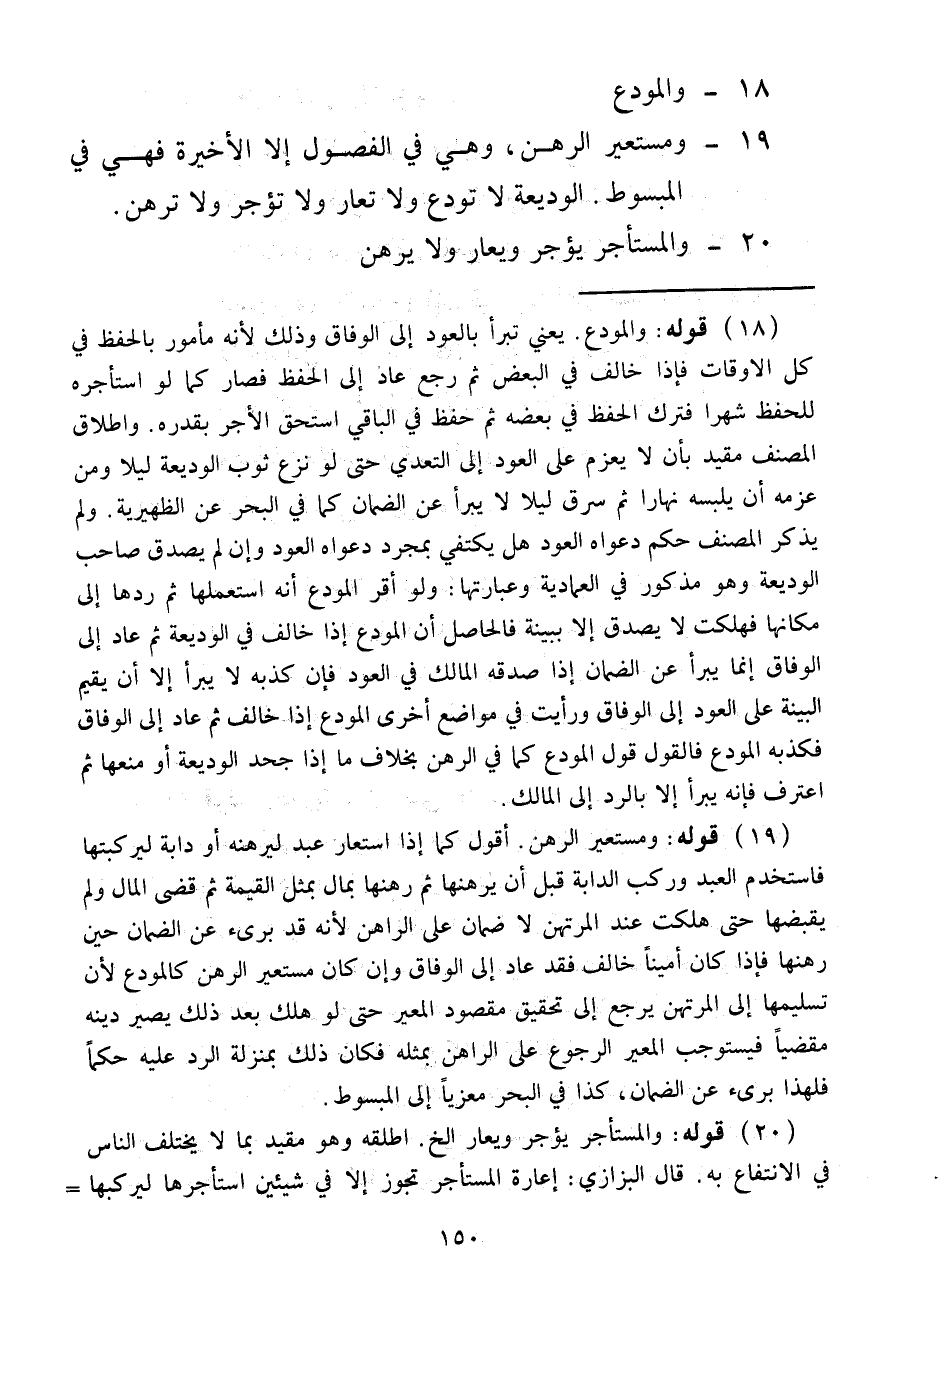 ١٨ - والمودع
١٩ - ومستعير الرهـن، وهـي في الفصـول إلا الأخيرة فهـي في
المبسوط. الوديعة لا تودع ولا تعار ولا تؤجر ولا ترهن.
٢٠ - والمستأجر يؤجر ويعار ولا يرهن
(١٨) قوله: والمودع. يعني تبرأ بالعود إلى الوفاق وذلك لأنه مأمور بالحفظ في
كل الاوقات فإذا خالف في البعض ثم رجع عاد إلى الحفظ فصار كما لو استأجره
للحفظ شهرا فترك الحفظ في بعضه ثم حفظ في الباقي استحق الأجر بقدره. واطلاق
المصنف مقيد بأن لا يعزم على العود إلى التعدي حتى لو نزع ثوب الوديعة ليلا ومن
عزمه أن يلبسه نهارا ثم سرق ليلا لا يبرأ عن الضمان كما في البحر عن الظهيرية. ولم
يذكر المصنف حكم دعواه العود هل يكتفي بمجرد دعواه العود وإن لم يصدق صاحب
الوديعة وهو مذكور في العمادية وعبارتها: ولو أقر المودع أنه استعملها ثم ردها إلى
مكانها فهلكت لا يصدق إلا ببينة فالحاصل أن المودع إذا خالف في الوديعة ثم عاد إلى
الوفاق إنما يبرأ عن الضمان إذا صدقه المالك في العود فإن كذبه لا يبرأ إلا أن يقيم
البينة على العود إلى الوفاق ورأيت في مواضع أخرى المودع إذا خالف ثم عاد إلى الوفاق
فكذبه المودع فالقول قول المودع كما في الرهن بخلاف ما إذا جحد الوديعة أو منعها ثم
اعترف فإنه يبرأ إلا بالرد إلى المالك.
(١٩) قوله: ومستعير الرهن. أقول كما إذا استعار عبد ليرهنه أو دابة ليركبتها
فاستخدم العبد وركب الدابة قبل أن يرهنها ثم رهنها بمال بمثل القيمة ثم قضى المال ولم
يقبضها حتى هلكت عند المرتهن لا ضمان على الراهن لأنه قد برىء عن الضمان حين
رهنها فإذا كان أميناً خالف فقد عاد إلى الوفاق وإن كان مستعير الرهن كالمودع لأن
تسليمها إلى المرتهن يرجع إلى تحقيق مقصود المعير حتى لو هلك بعد ذلك يصير دينه
مقضياً فيستوجب المعير الرجوع على الراهن بمثله فكان ذلك بمنزلة الرد عليه حكماً
فلهذا برىء عن الضمان، كذا في البحر معزياً إلى المبسوط.
(٢٠) قوله: والمستأجر يؤجر ويعار الخ. اطلقه وهو مقيد بما لا يختلف الناس
في الانتفاع به. قال البزازي: إعارة المستأجر تجوز إلا في شيئين استأجرها ليركبها =
١٥٠